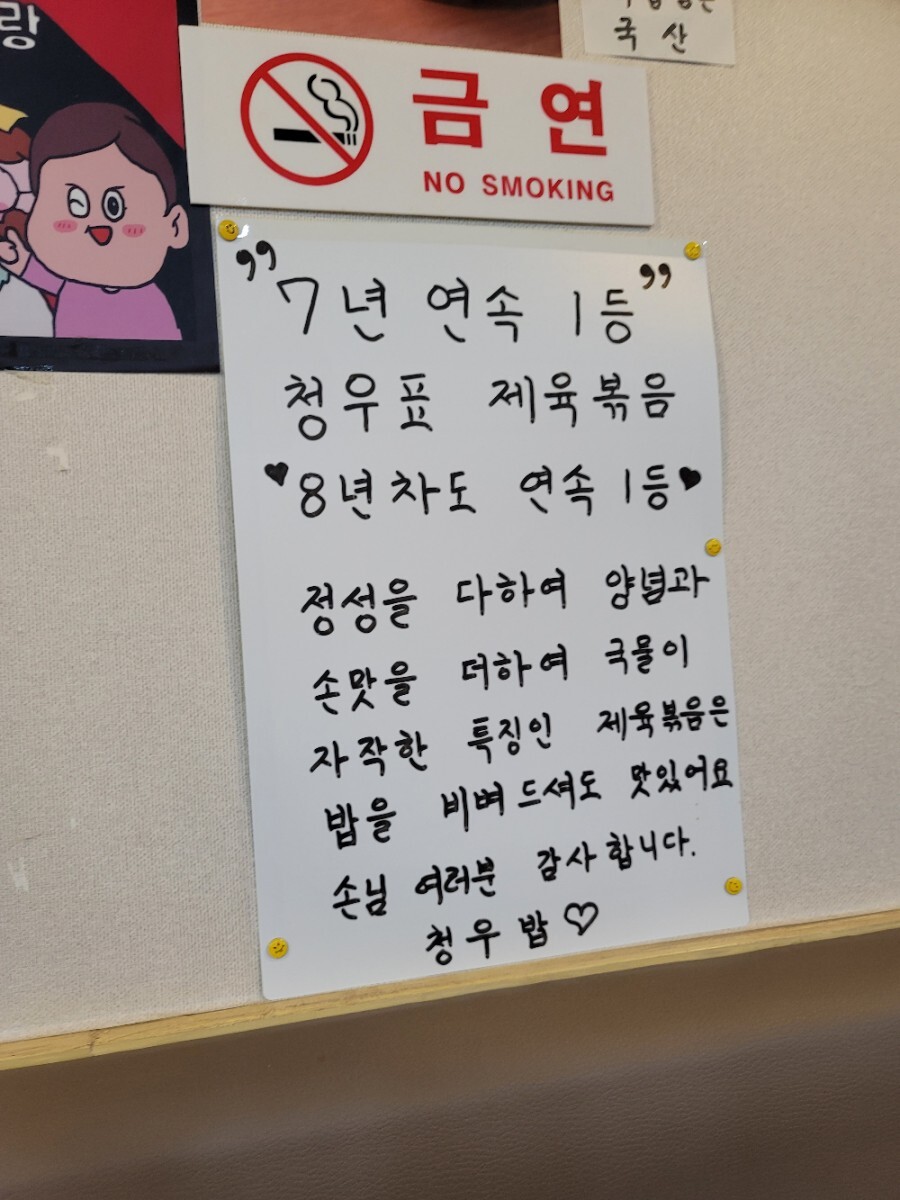 랑
국 산
금 연
NO SMOKING
" 7년 연속 1등 "
청우표 제육볶음
♥ 8년차도 연속 1등 ♥
정성을 다하여 양념과
손맛을 더하여 국물이
자작한 특징인 제육볶음은
밥을 비벼드셔도 맛있어요
손님 여러분 감사합니다.
청우밥♡